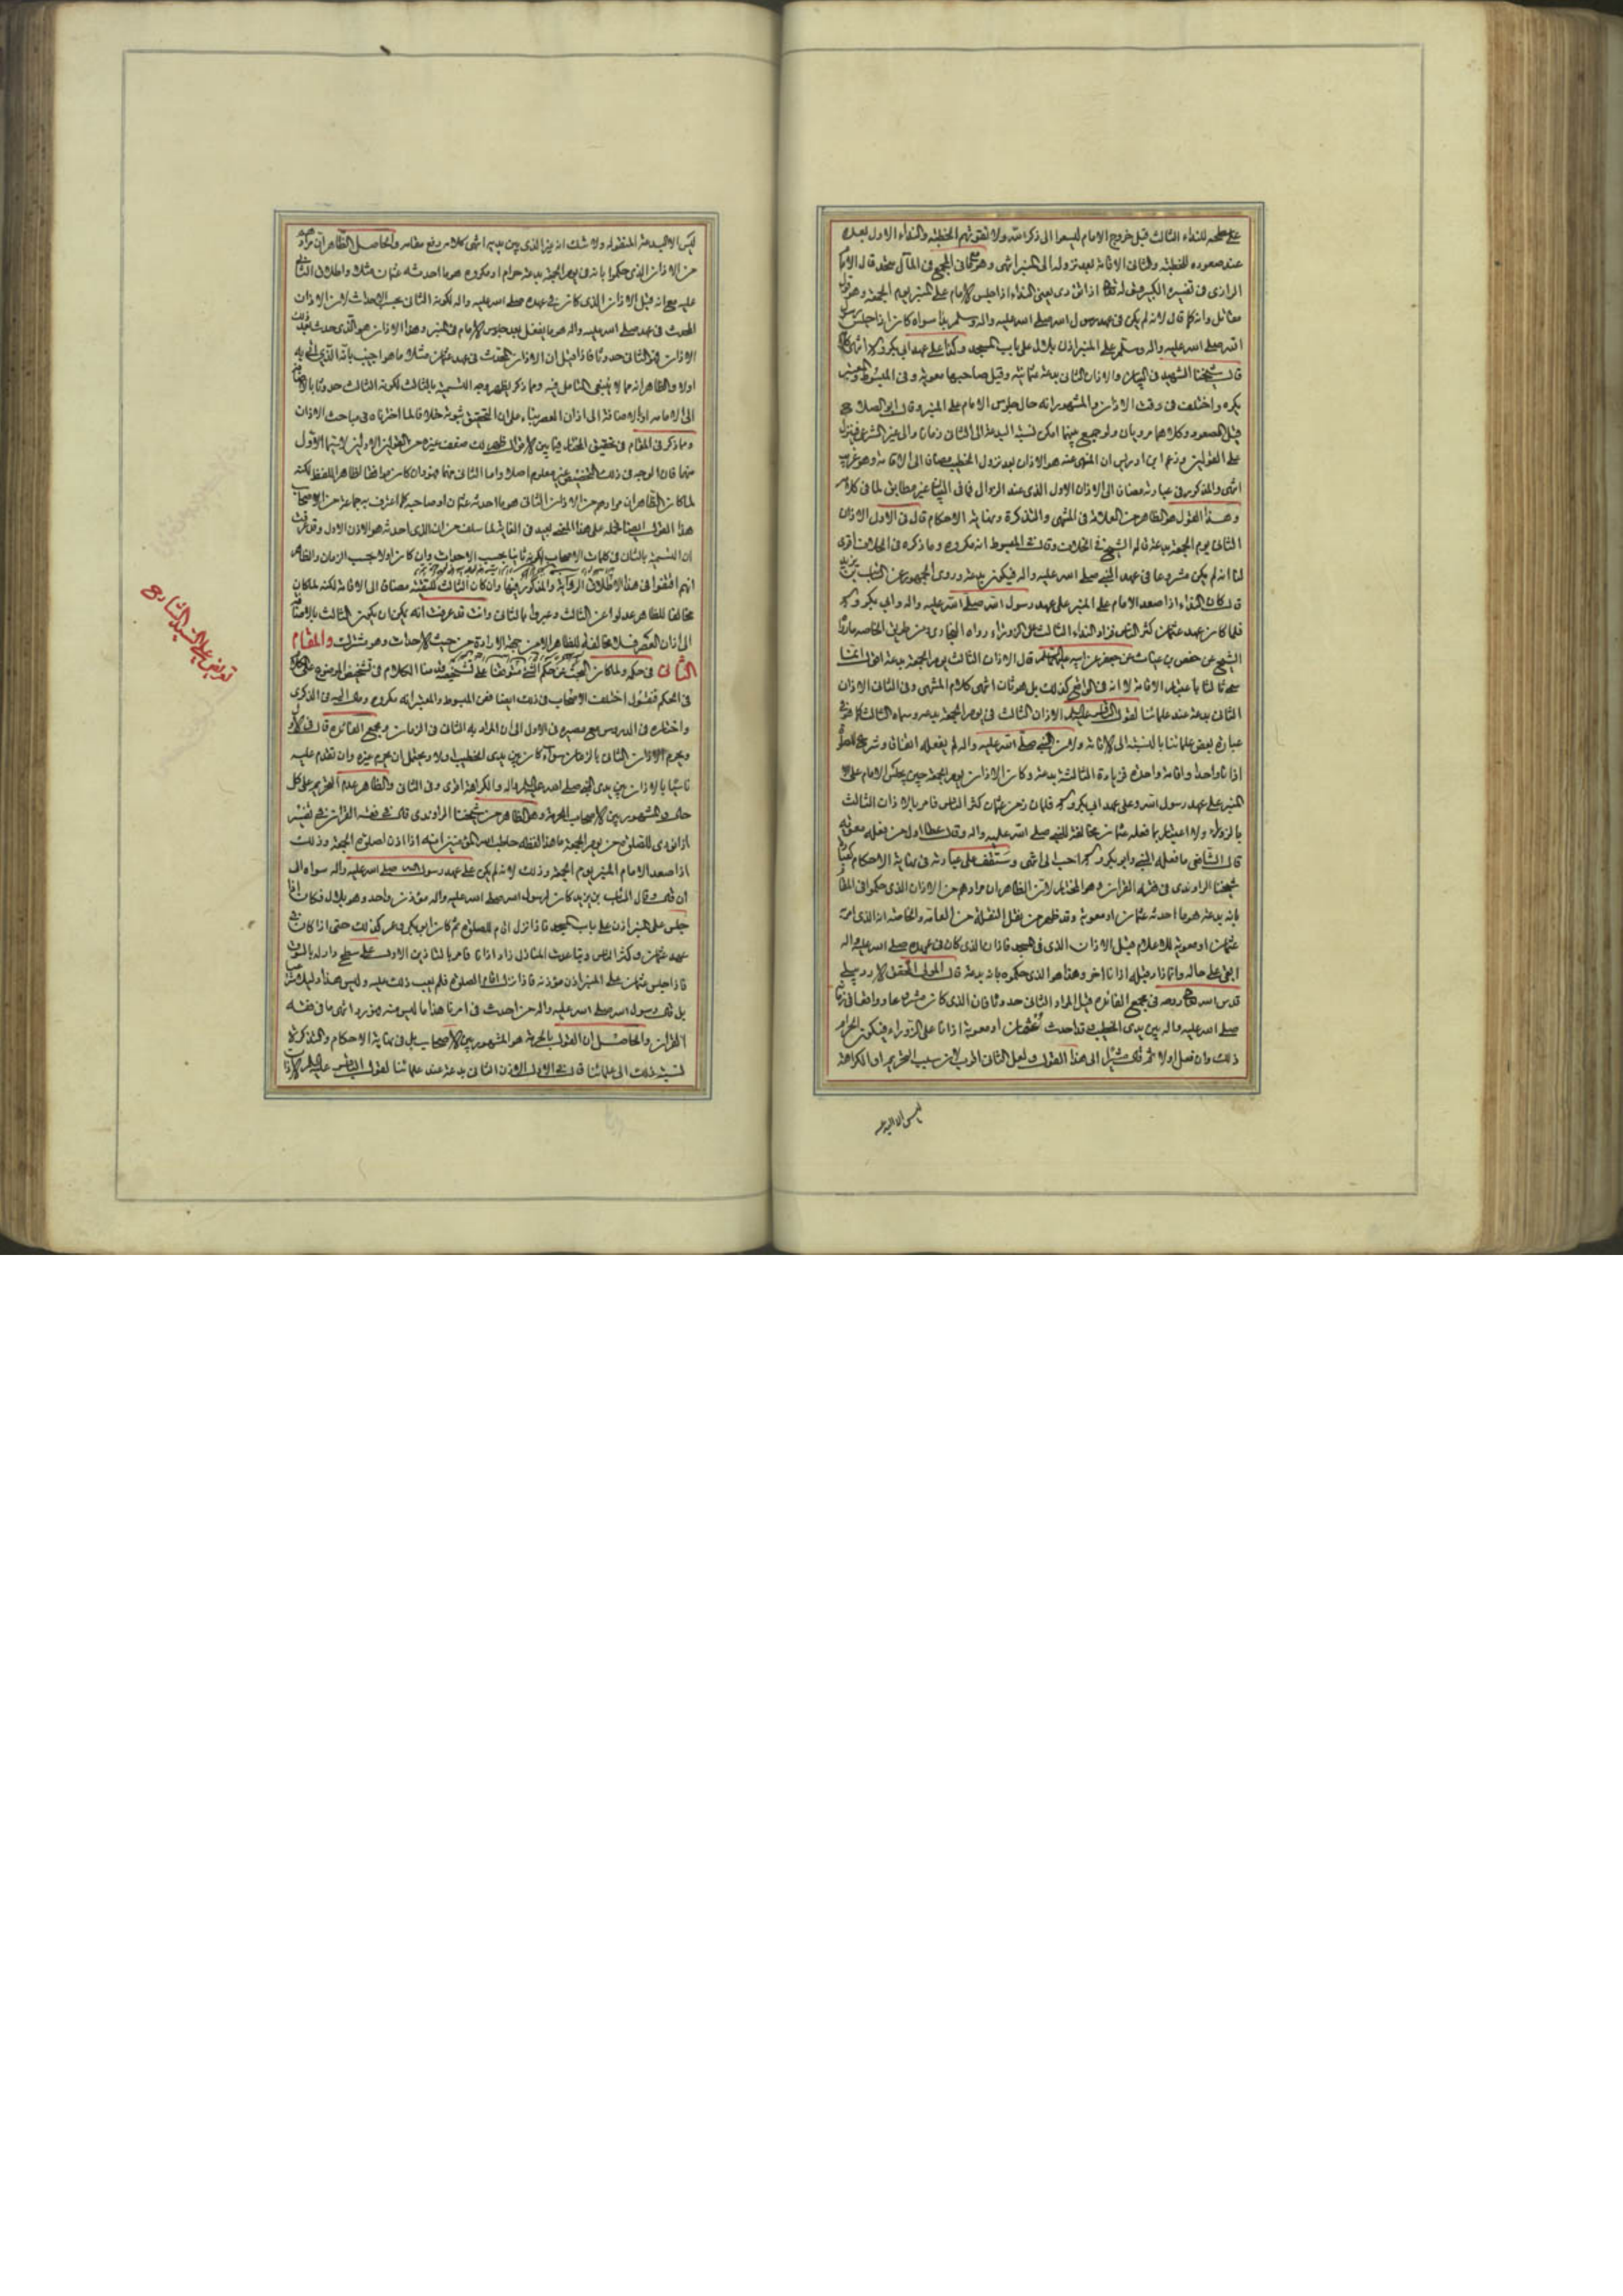 على سطحه للنداء الثالث قبل خروج الامام ليسعوا الى ذكر الله ولا تفوتهم الخطبة والنداء الاول بعده
عند صعوده للخطبة والثانى الاقامة بعد نزوله الى المنبر انتهى وهو كما فى المجمع فى المآل متحد قال الامام
الرازى فى تفسيره الكبير قوله تعالى اذا نودى يعنى النداء اذا جلس الامام على المنبر يوم الجمعة وهو قول
مقاتل وانه كما قال لانه لم يكن فى عهد رسول الله صلى الله عليه واله وسلم نداء سواه كان اذا جلس رسول
الله صلى الله عليه واله وسلم على المنبر اذن بلال على باب المسجد وكذا على عهد ابى بكر وعمر انتهى
قال شيخنا الشهيد فى البيان والاذان الثانى بدعة عثمانية وقيل صاحبها معوية وفى المبسوط والمعتبر
يكره واختلف فى وقت الاذان والمشهور انه حال جلوس الامام على المنبر وقال ابو الصلاح
قبل الصعود وكلاهما مرويان ولو جمع بينهما امكن نسبة البدعة الى الثانى زمانا والى غير الشرعى فينزل
على القولين وزعم ابن ادريس ان المنهى عنه هو الاذان بعد نزول الخطيب مضافا الى الاقامة وهو غريب
انتهى والمذكور فى عبارته مضافا الى الاذان الاول الذى عند الزوال فما فى البيان غير مطابق لما فى كلامه
وهذا القول هو الظاهر من العلامة فى المنتهى والتذكرة ونهاية الاحكام قال فى الاول الاذان
الثانى يوم الجمعة بدعة قاله الشيخ فى الخلاف وقال فى المبسوط انه مكروه وما ذكره فى الخلاف اقوى
لنا انه لم يكن مشروعا فى عهد النبى صلى الله عليه واله فيكون بدعة وروى الجمهور عن السائب بن يزيد
قال كان النداء اذا صعد الامام على المنبر على عهد رسول الله صلى الله عليه واله وابى بكر وعمر
فلما كان عهد عثمان كثر الناس فزاد النداء الثالث على الزوراء رواه البخارى ومن طريق الخاصة ما رواه
الشيخ عن حفص بن غياث عن جعفر عن ابيه عليهما السلام قال الاذان الثالث يوم الجمعة بدعة
سمى ثالثا باعتبار الاقامة لا انه فى الواقع كذلك بل هو ثان انتهى كلام المنتهى وفى الثانى الاذان
الثانى بدعة عند علمائنا لقول الباقر عليه السلم الاذان الثالث فى يوم الجمعة بدعة وسماه الثالث كما هو فى
عبارة بعض علمائنا بالنسبة الى الاقامة ولان النبى صلى الله عليه واله لم يفعله اتفاقا وشرع للصلوة
اذانا واحدا واقامة واحدة فزيادة الثالثة بدعة وكان الاذان يوم الجمعة حين يجلس الامام على
المنبر على عهد رسول الله وعلى عهد ابى بكر وعمر فلما كان زمن عثمان كثر الناس فامر بالاذان الثالث
بالزوراء ولا اعتبار بما فعله عثمان مخالفة للنبى صلى الله عليه واله وقال عطا اول من فعله معوية
قال الشافعى ما فعله النبى وابو بكر وعمر احب الى انتهى وستقف على عبارته فى نهاية الاحكام
شيخنا الراوندى فى فقه القران وهو المختار لان الظاهر ان مرادهم من الاذان الذى حكموا فى المقام
بانه بدعة هو ما احدثه عثمان او معوية وقد ظهر من نقل النقلة من العامة والخاصة اذ الذى احدثه
عثمان او معوية للاعلام قبل الاذان الذى فى المسجد فاذان الذى كان فى عهده صلى الله عليه واله
ابقى على حاله وانما زاد قبله اذانا اخر وهذا هو الذى حكموه بانه بدعة قال المولى المحقق الاردبيلى
قدس الله روحه فى مجمع الفائدة قيل المراد الثانى حدوثا فان الذى كان مشروعا وواقعا فى زمانه
صلى الله عليه واله بين يدى الخطيب قد احدث عثمان او معوية اذانا على الزوراء فيكون الحرام
ذلك وان فعل اولا ثم قال مشيرا الى هذا القول ولعل الثانى اقرب لان سبب التحريم او الكراهة
ليس الا البدعة
ليس الا البدعة المنقولة ولا شك انه غير الذى بين يديه انتهى كلامه رفع مقامه والحاصل الظاهر ان مرادهم
من الاذان الذى حكموا بانه فى يوم الجمعة بدعة حرام او مكروه هو ما احدثه عثمان مثلا واطلاق الثانى
عليه مع انه قبل الاذان الذى كان فى عهده صلى الله عليه واله لكونه الثانى بحسب الاحداث لان الاذان
المحدث فى عهد صلى الله عليه واله هو ما يفعل بعد جلوس الامام فى المنبر وهذا الاذان هو الذى حدث بعد ذلك
الاذان فهو الثانى حدوثا فاذا قيل ان الاذان المحدث فى عهد عثمان مثلا ما هو اجيب بانه الذى اتى به
اولا والظاهر انه مما لا ينبغى التامل فيه ومما ذكر يظهر وجه التسمية بالثالث لكونه الثالث حدوثا بالاضافة
الى الاقامة او الاضافة الى اذان العصر بناء على ان التحقيق ثبوته خلافا لما اخترناه فى مباحث الاذان
وما ذكر فى المقام فى تحقيق المختار فيما بين الاقوال ظهر لك ضعف غيره من القولين الاولين لاسيما الاول
منهما فان الوجه فى ذلك التخصيص غير معلوم اصلا واما الثانى منهما فهو وان كان موافقا لظاهر اللفظ لكنه
لما كان الظاهر ان مرادهم من الاذان الثانى هو ما احدثه عثمان او صاحبه كما اعترف به جماعة من الاصحاب
هذا القول ايضا لحمله على هذا المعنى بعيد فى الغاية لما سلف من ان الذى احدثه هو الاذان الاول وقد عرفت
ان التسمية بالثانى فى كلمات الاصحاب لكونه ثانيا بحسب الاحداث وان كان اولا بحسب الزمان والظاهر
انهم اقتفوا فى هذا الاطلاق الرواية والمذكور فيها وان كان الثالث حقيقة مضافا الى الاقامة لكنه لما كان
مخالفا للظاهر عدلوا عن الثالث وعبروا بالثانى وانت قد عرفت انه يمكن ان يكون الثالث بالاضافة
الى اذان العصر فلا مخالفة للظاهر الا من جهة الارادة من حيث الاحداث وهو مشترك والمقام
الثانى فى حكمه ولما كان البحث عن حكم الشئ متوقفا على تشخيصه قدمنا الكلام فى تشخيص الموضوع على الكلام
فى الحكم فنقول اختلف الاصحاب فى ذلك ايضا ففى المبسوط والمعتبر انه مكروه ومال اليه فى الذكرى
واختاره فى الدروس مع مصيره فى الاول الى ان المراد به الثانى فى الزمان ومجمع الفائدة قال فى الاول
ويحرم الاذان الثانى بالزمان سواء كان بين يدى الخطيب اولا ويحتمل ان يحرم غيره وان تقدم عليه
تاسيا بالاذان بين يدى النبى صلى الله عليه واله والكراهة اقوى وفى الثانى والظاهر عدم التحريم على كل
حال والمشهور بين الاصحاب الحرمة وهو الظاهر من شيخنا الراوندى قال فى فقه القران فى تفسير
اذا نودى للصلوة من يوم الجمعة ما هذا لفظه خاطب الله المؤمنين انه اذا اذن لصلوة الجمعة وذلك
اذا صعد الامام المنبر يوم الجمعة وذلك لانه لم يكن على عهد رسول الله صلى الله عليه واله سواه الى
ان قال وقال السائب بن يزيد كان لرسول الله صلى الله عليه واله مؤذن واحد وهو بلال فكان اذا
جلس على المنبر اذن على باب المسجد فاذا نزل اقام للصلوة ثم كان ابو بكر وعمر كذلك حتى اذا كان فى
عهد عثمان وكثر الناس وتباعدت المنازل زاد اذانا فامر بالتاذين الاول على سطح دار له بالسوق
فاذا جلس عثمان على المنبر اذن مؤذنه فاذا نزل اقام الصلوة فلم يعب ذلك عليه وليس هذا دليل
بل قال رسول الله صلى الله عليه واله من احدث فى امرنا هذا ما ليس منه فهو رد انتهى ما فى فقه
القران والحاصل ان القول بالحرمة هو المشهور بين الاصحاب بل فى نهاية الاحكام والتذكرة
نسبة ذلك الى علمائنا قال فى الاول الاذان الثانى بدعة عند علمائنا لقول الباقر عليه السلم الاذان
تعريض على السيد الشارح